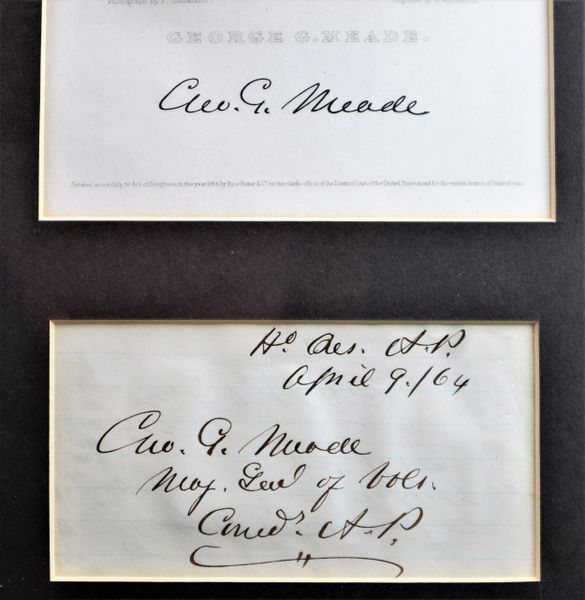 Photograph by F. Gutekunst
GEORGE G. MEADE.
Geo. G. Meade
Entered according to Act of Congress in the year 1866 by Rice Butler & Co. in the clerks office of the District Court of the United States in and for the eastern district of Pennsylvania
Hd Qrs. A.P.
April 9./64
Geo. G. Meade
Maj. Genl of Vols.
Comdr. A.P.